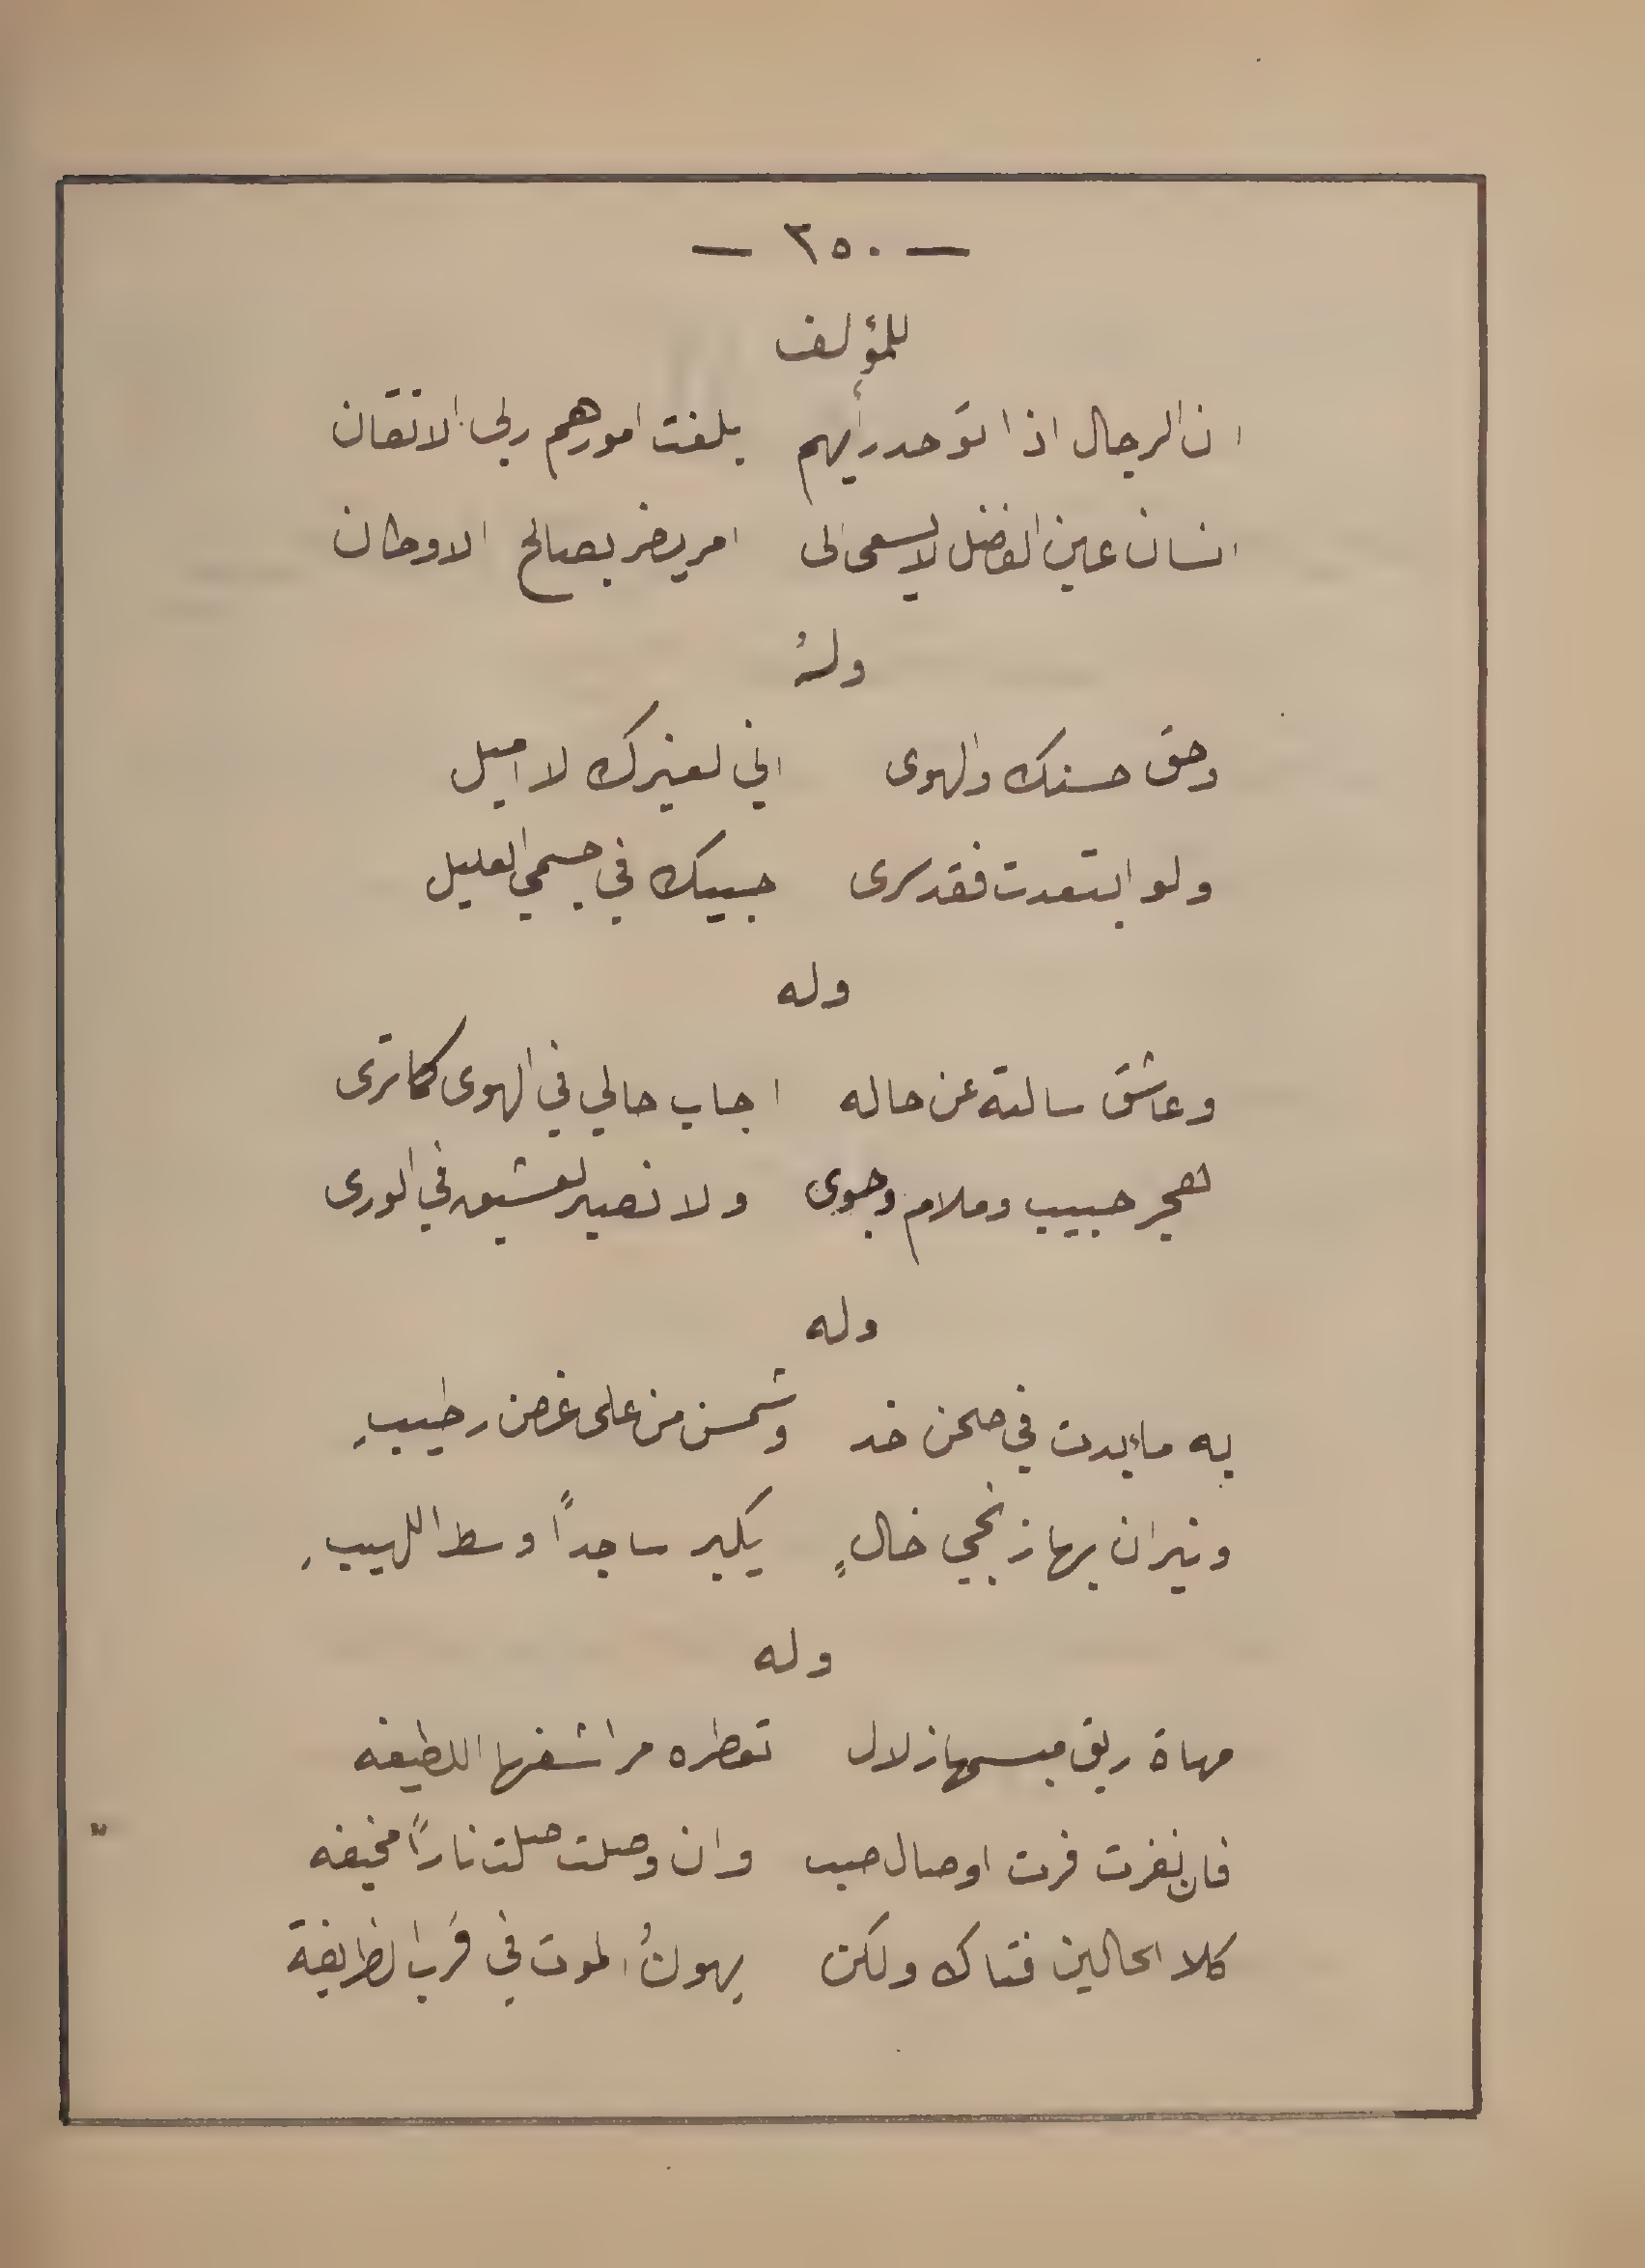 — ٣٥٠ —
للمؤلف
ان الرجال اذا توحد رأيهم بلغت امورهم ربى الاتقان
انسان عين الفضل لا يسعى الى امر يضر بصالح الاوطان
ولهُ
وحق حسنك والهوى اني لغيرك لا اميل
ولو ابتعدت فقد سرى حبيك في جسمي العليل
وله
وعاشق سالته عن حاله اجاب حالي في الهوى كما ترى
هجر حبيب وملام وجوى ولا نصير لعشيق في الورى
وله
به ماء بدت في صحن خد وشمس من على غصن رطيبِ
ونيران بها زنجي خالٍ يكبر ساجداً وسط اللهيبِ
وله
مهاة ريق مبسمها زلال تعطره مراشفها اللطيفه
فان نفرت فرت اوصال صب وان وصلت صلت ناراً مخيفه
كلا الحالين فتاك ولكن يهونُ الموت في قرب الظريفة